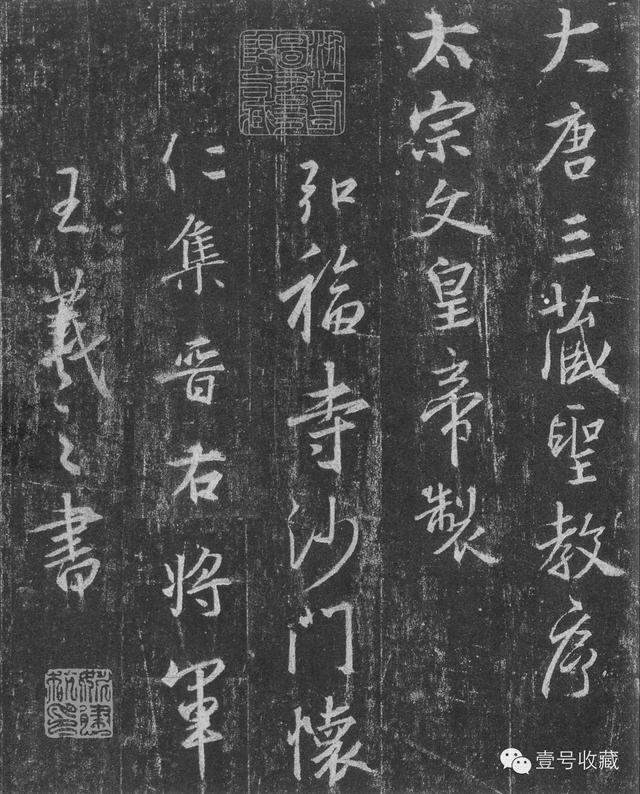 大唐三藏聖教序
太宗文皇帝製
弘福寺沙門懷
仁集晉右將軍
王羲之書
壹号收藏